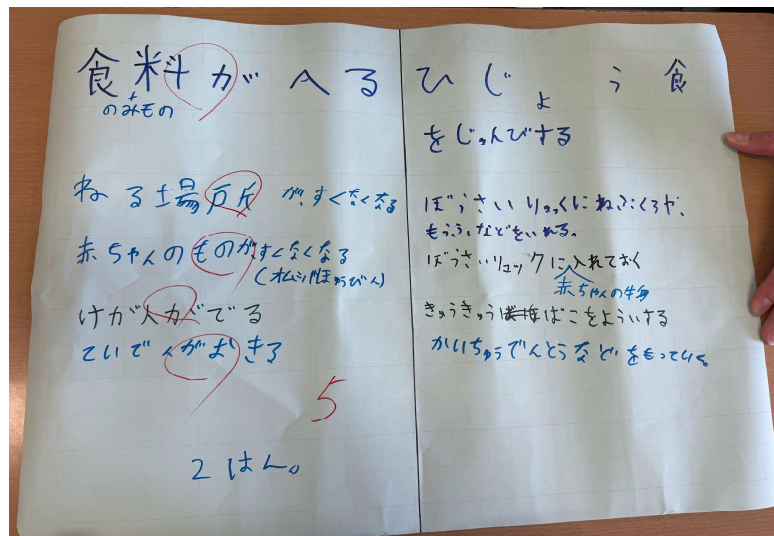 食料がへる
+
のみもの
ねる場所が、すくなくなる
赤ちゃんのものが、すくなくなる
(オムツ
けが人がでる
ていでんがおきる
5
2はん。
ひじょう食
をじゅんびする
ぼうさいりゅっくにねぶくろや、
もうふ、などをいれる。
ぼうさいリュックに入れておく
赤ちゃんの
きゅうきゅうばこをよういする
かいちゅうでんとうなどをもっていく